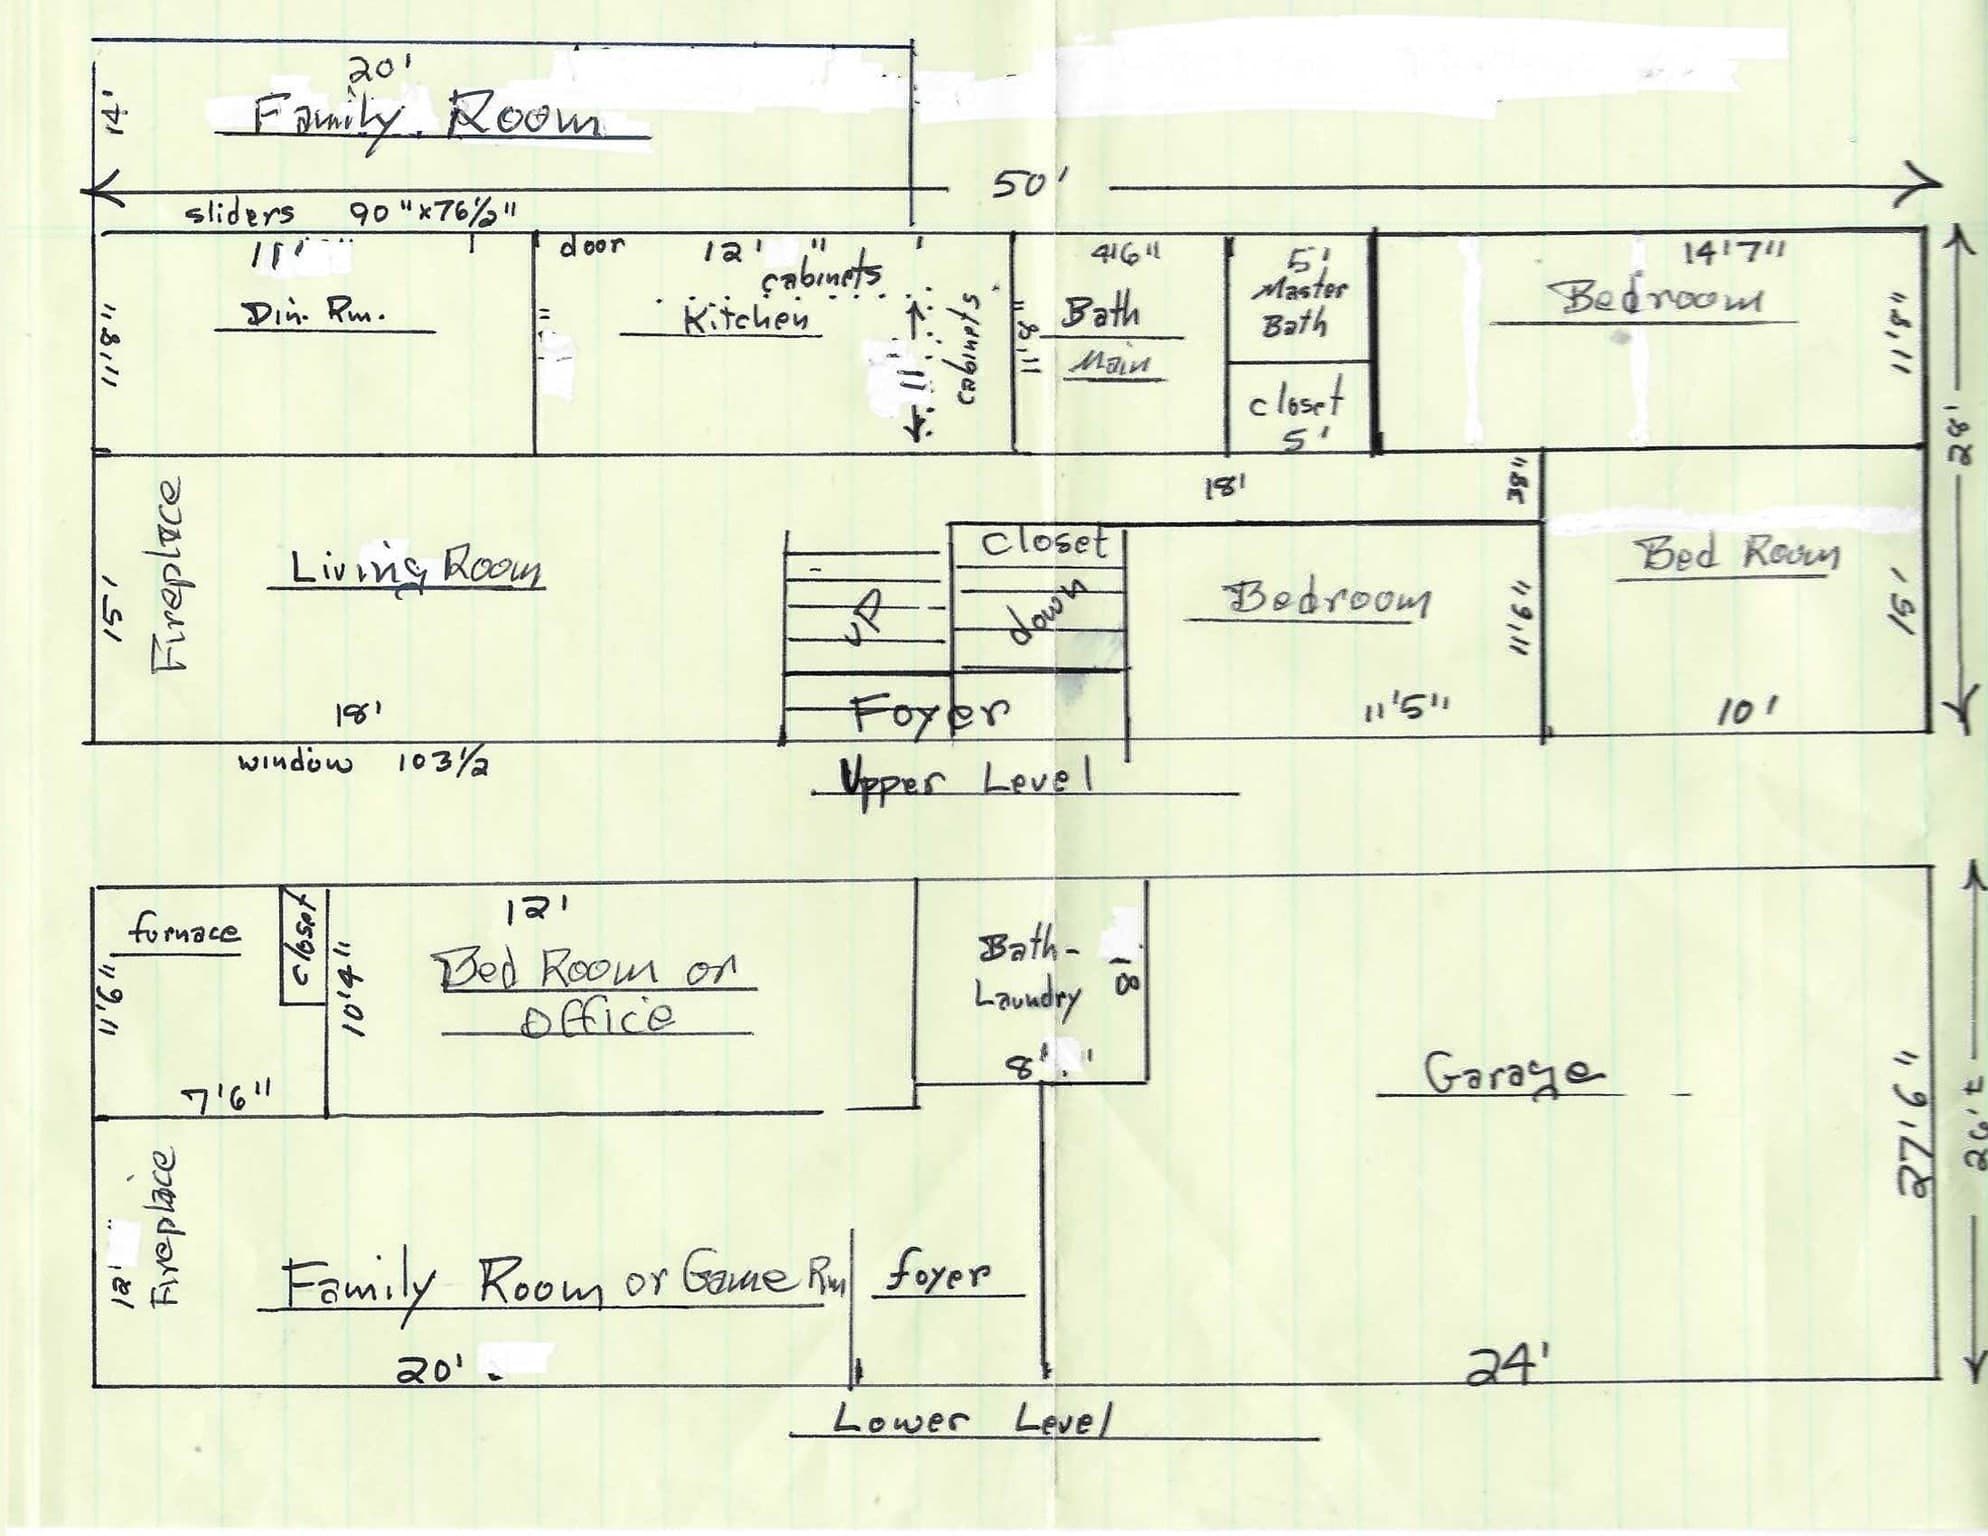 20'
14'
Family Room
50'
sliders 90"x76½"
11'
door
12' "
4'6"
5'
14'7"
cabinets
Master
Bath
Bedroom
Din. Rm.
Kitchen
cabinets
11'
11'8"
11'8"
Bath
Main
11'8"
closet
5'
28'
18'
38"
Fireplace
closet
Living Room
up
down
Bedroom
11'9"
Bed Room
15'
15'
18'
Foyer
11'5"
10'
window 103½
Upper Level
furnace
closet
12'
10'4"
Bed Room or
office
Bath-
Laundry
8'
8' "
11'6"
7'6"
Garage
27'6"
Fireplace
12' "
Family Room or Game Rm
foyer
20'
24'
Lower Level